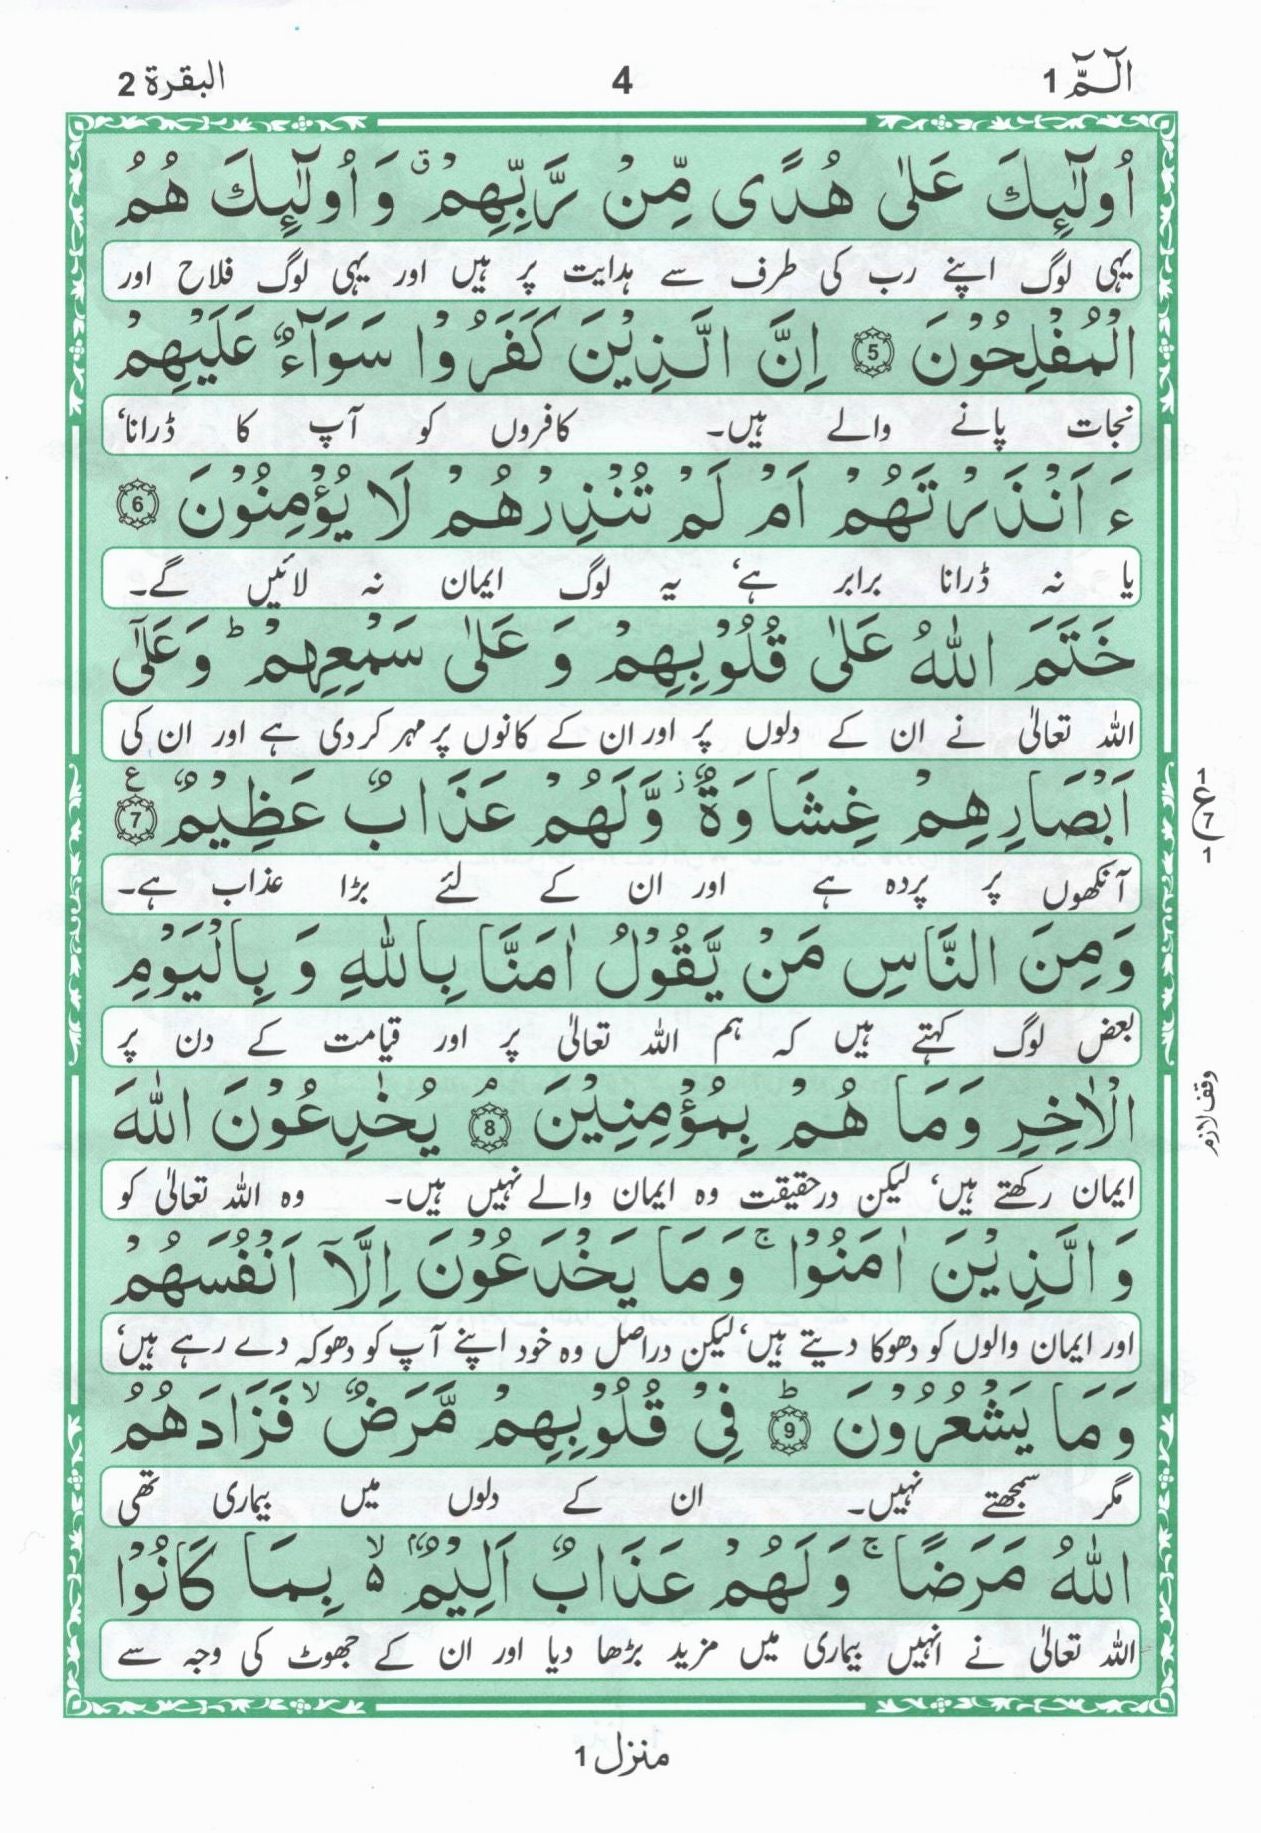 الٓمّٓ 1
4
البقرة 2
اُولٰٓئِكَ عَلٰى هُدًى مِّنْ رَّبِّهِمْ ۗ وَ اُولٰٓئِكَ هُمُ
یہی لوگ اپنے رب کی طرف سے ہدایت پر ہیں اور یہی لوگ فلاح اور
الْمُفْلِحُوْنَ 5 اِنَّ الَّذِيْنَ كَفَرُوْا سَوَآءٌ عَلَيْهِمْ
نجات پانے والے ہیں۔ کافروں کو آپ کا ڈرانا،
ءَاَنْذَرْتَهُمْ اَمْ لَمْ تُنْذِرْهُمْ لَا يُؤْمِنُوْنَ 6
یا نہ ڈرانا برابر ہے، یہ لوگ ایمان نہ لائیں گے۔
خَتَمَ اللّٰهُ عَلٰى قُلُوْبِهِمْ وَ عَلٰى سَمْعِهِمْ ؕ وَعَلٰٓى
اللہ تعالیٰ نے ان کے دلوں پر اور ان کے کانوں پر مہر کردی ہے اور ان کی
اَبْصَارِهِمْ غِشَاوَةٌ ز وَّلَهُمْ عَذَابٌ عَظِيْمٌ 7 ع
آنکھوں پر پردہ ہے اور ان کے لئے بڑا عذاب ہے۔
1 ع 7 1
وَمِنَ النَّاسِ مَنْ يَّقُوْلُ اٰمَنَّا بِاللّٰهِ وَ بِالْيَوْمِ
بعض لوگ کہتے ہیں کہ ہم اللہ تعالیٰ پر اور قیامت کے دن پر
الْاٰخِرِ وَمَا هُمْ بِمُؤْمِنِيْنَ 8 ۘ يُخٰدِعُوْنَ اللّٰهَ
وقف لازم
ایمان رکھتے ہیں، لیکن درحقیقت وہ ایمان والے نہیں ہیں۔ وہ اللہ تعالیٰ کو
وَالَّذِيْنَ اٰمَنُوْا ۚ وَمَا يَخْدَعُوْنَ اِلَّآ اَنْفُسَهُمْ
اور ایمان والوں کو دھوکا دیتے ہیں، لیکن دراصل وہ خود اپنے آپ کو دھوکہ دے رہے ہیں،
وَمَا يَشْعُرُوْنَ 9 ؕ فِيْ قُلُوْبِهِمْ مَّرَضٌ ۙ فَزَادَهُمُ
مگر سمجھتے نہیں۔ ان کے دلوں میں بیماری تھی
اللّٰهُ مَرَضًا ۚ وَلَهُمْ عَذَابٌ اَلِيْمٌۢ ۵ ۙ بِمَا كَانُوْا
اللہ تعالیٰ نے انہیں بیماری میں مزید بڑھا دیا اور ان کے جھوٹ کی وجہ سے
منزل 1